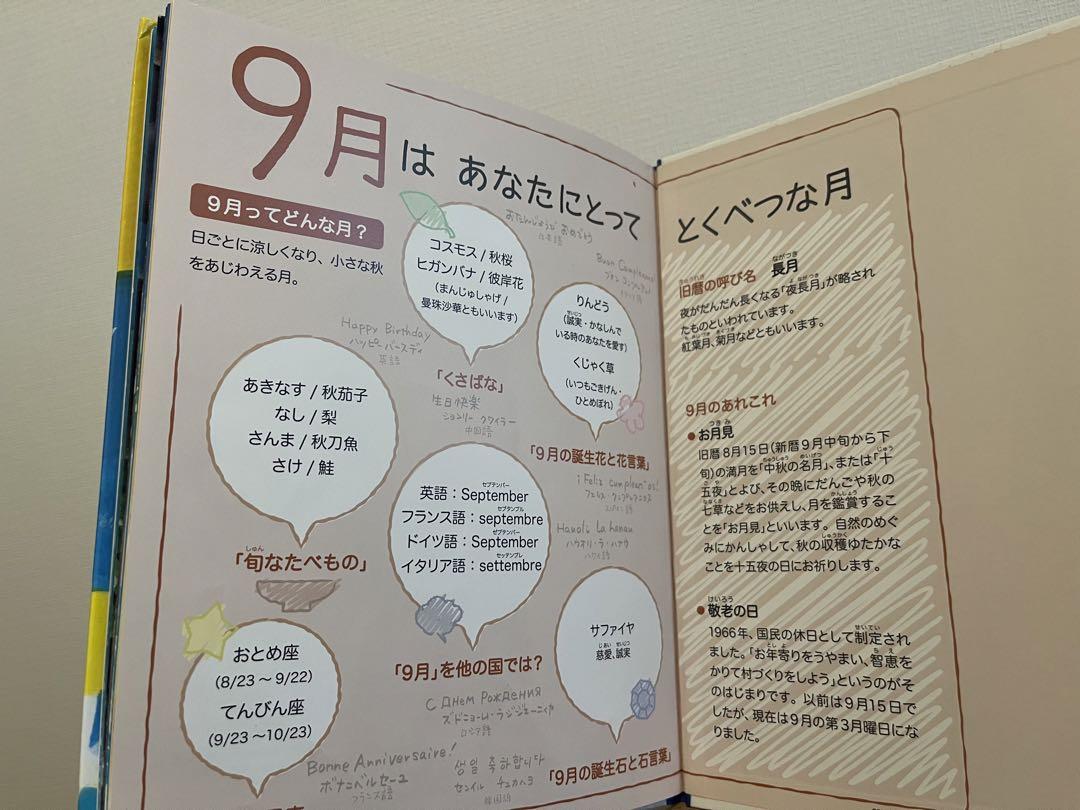 9月は あなたにとって
9月ってどんな月？
日ごとに涼しくなり、小さな秋
をあじわえる月。
コスモス / 秋桜
ヒガンバナ / 彼岸花
(まんじゅしゃげ /
曼珠沙華ともいいます)
「くさばな」
おたんじょうび おめでとう
日本語
りんどう
せいじつ
(誠実・かなしんで
いる時のあなたを愛す)
くじゃく草
(いつもごきげん・
ひとめぼれ)
「9月の誕生花と花言葉」
Happy Birthday
ハッピーバースデイ
英語
あきなす / 秋茄子
なし / 梨
さんま / 秋刀魚
さけ / 鮭
しゅん
「旬なたべもの」
生日快楽
中国語
セプテンバー
英語：September
セプタンブル
フランス語：septembre
ゼプテンバー
ドイツ語：September
セッテンブレ
イタリア語：settembre
「9月」を他の国では？
スペイン語
Hauoli La hanau
ハウオリ・ラ・ハナウ
ハワイ語
サファイヤ
じあい せいじつ
慈愛、誠実
「9月の誕生石と石言葉」
おとめ座
(8/23 〜 9/22)
てんびん座
(9/23 〜10/23)
С Днем Рождения
ロシア語
Bonne Anniversaire!
ボナニベルセーユ
フランス語
생일 축하합니다
センイル チュカハヨ
韓国語
とくべつな月
きゅうれき
旧暦の呼び名
ながつき
長月
よ ながつき
夜がだんだん長くなる「夜長月」が略され
たものといわれています。
もみじづき きくづき
紅葉月、菊月などともいいます。
9月のあれこれ
つきみ
●お月見
旧暦8月15日（新暦9月中旬から下
ちゅうしゅう めいげつ じゅう
旬）の満月を「中秋の名月」、または「十
ごや
五夜」とよび、その晩にだんごや秋の
ななくさ かんしょう
七草などをお供えし、月を鑑賞するこ
とを「お月見」といいます。自然のめぐ
しゅうかく
みにかんしゃして、秋の収穫ゆたかな
ことを十五夜の日にお祈りします。
けいろう
●敬老の日
せいてい
1966年、国民の休日として制定され
としよ ちえ
ました。「お年寄りをうやまい、智恵を
かりて村づくりをしよう」というのがそ
のはじまりです。以前は9月15日で
したが、現在は9月の第3月曜日にな
りました。